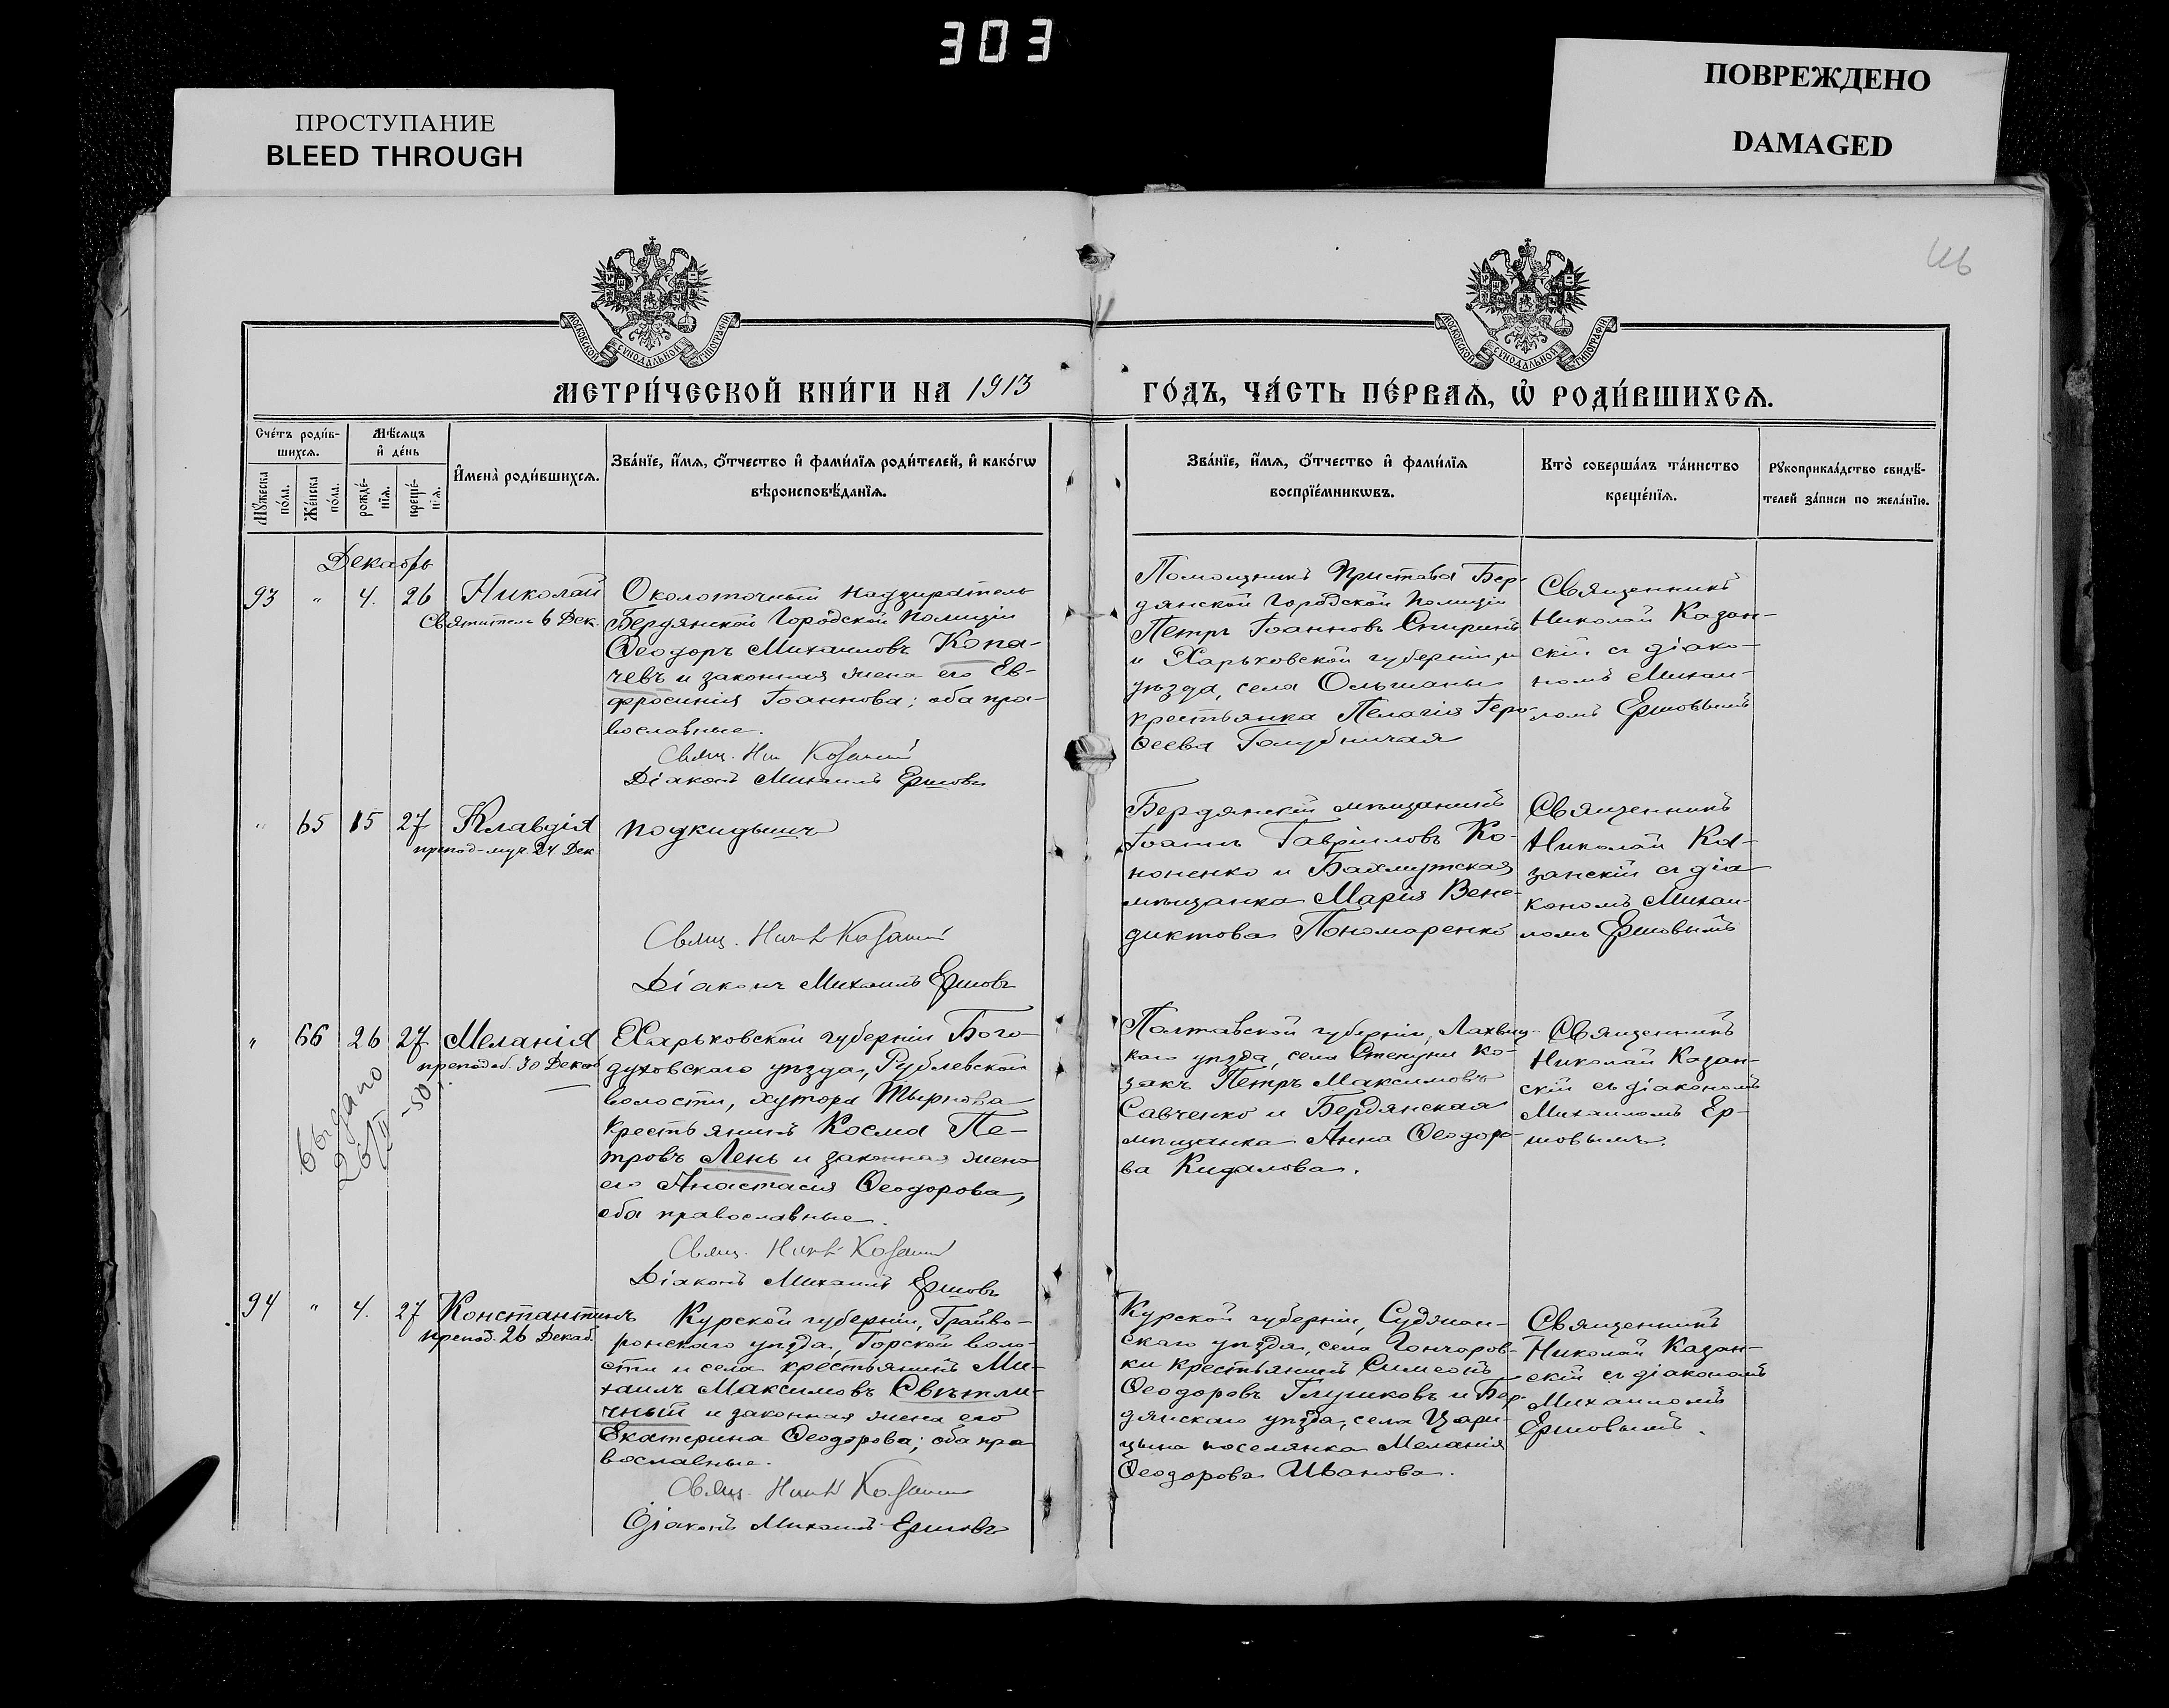 303
ПРОСТУПАНИЕ
BLEED THROUGH
ПОВРЕЖДЕНО
DAMAGED
МОСКОВСКОЙ СѴНОДАЛЬНОЙ ТИПОГРАФІИ
МОСКОВСКОЙ СѴНОДАЛЬНОЙ ТИПОГРАФІИ
МЕТРИ́ЧЕСКОЙ КНИ́ГИ НА 1913
ГО́ДЪ, ЧА́СТЬ ПЕ́РВАѦ, Ѡ҆ РОДИ́ВШИХСѦ.
Сче́тъ роди́в-
шихсѧ.
Мꙋ́жеска по́ла.
Же́нска по́ла.
Мѣ́сѧцъ
и҆ де́нь
рожде́-
нїѧ.
креще́-
нїѧ.
И҆мена̀ роди́вшихсѧ.
Зва́нїе, и҆́мѧ, ѻ҆́тчество и҆ фами́лїѧ роди́телей, и҆ како́гѡ
вѣроисповѣ́данїѧ.
Зва́нїе, и҆́мѧ, ѻ҆́тчество и҆ фами́лїѧ
воспрїе́мникѡвъ.
Кто̀ соверша́лъ та́инство
креще́нїѧ.
Рꙋкоприкла́дство свидѣ́-
телей за́писи по жела́нїю.
Декабрь
93 " 4. 26 Николай
Святителя 6 Дек.
Околоточный надзиратель
Бердянской Городской Полиціи
Ѳеодоръ Михаиловъ Копа-
чевъ и законная жена его Ев-
фросинія Іоаннова; оба пра-
вославные.
Свящ. Ник Казанскій
Діаконъ Михаилъ Ершовъ
Помощникъ Пристава Бер-
дянской Городской Полиціи
Петръ Іоанновъ Спиринъ
и Харьковской губерніи, и
уѣзда, села Ольшаны
крестьянка Пелагія Геро-
ѳеева Голубничая
Священникъ
Николай Казан-
скій съ діако-
номъ Михаи-
ломъ Ершовымъ
" 65 15 27 Клавдія
препод-муч. 24 Дек
подкидышъ
Свящ. Ник Казанскій
Діаконъ Михаилъ Ершовъ
Бердянскій мѣщанинъ
Іоаннъ Гавріиловъ Ко-
ноненко и Бахмутская
мѣщанка Марія Вене-
диктова Пономаренко
Священникъ
Николай Ка-
занскій съ діа
кономъ Михаи-
ломъ Ершовымъ
" 66 26 27 Меланія
преподоб. 30 Декаб
выдано
26/II -50 г.
Харьковской губерніи Бого-
духовскаго уѣзда, Рублевской
волости, хутора Тырнова
крестьянинъ Косма Пе-
тровъ Лень и законная жена
его Анастасія Ѳеодорова,
оба православные.
Свящ. Ник Казанскій
Діаконъ Михаилъ Ершовъ
Полтавской губерніи, Лохвиц-
каго уѣзда, села ко-
закъ Петръ Максимовъ
Савченко и Бердянская
мѣщанка Анна Ѳеодоро-
ва Кидалова.
Священникъ
Николай Казан-
скій съ діакономъ
Михаиломъ Ер-
шовымъ.
94 " 4. 27 Константинъ
препод. 26 Декаб.
Курской губерніи, Грайво-
ронскаго уѣзда, Борской воло-
сти и села крестьянинъ Ми-
хаилъ Максимовъ Свѣтли-
чный и законная жена его
Екатерина Ѳеодорова; оба пра
вославные.
Свящ. Ник Казанскій
Діаконъ Михаилъ Ершовъ
Курской губерніи, Суджан-
скаго уѣзда, села Гончаров-
ки крестьянинъ Симеонъ
Ѳеодоровъ Глушковъ и Бер-
дянскаго уѣзда, села Цари-
цына поселянка Меланія
Ѳеодорова Иванова.
Священникъ
Николай Казан-
скій съ діакономъ
Михаиломъ
Ершовымъ.